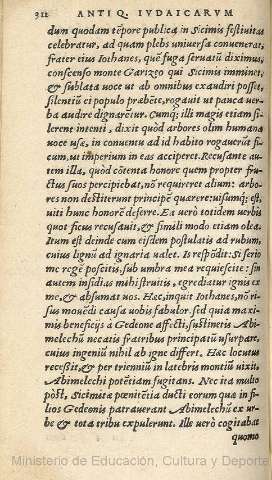 312 ANTIQ. IVDAICARVM
dum quodam tēpore publica in Sicimis festiuitas
celebratur, ad quam plebs uniuersa conuenerat,
frater eius Iothanes, què fuga seruatū diximus,
conscenso monte Garizgo qui Sicimis imminet,
& sublata uoce ut ab omnibus exaudiri posset,
silentiū ei populo præbēte, rogauit ut pauca uer-
ba audire dignarētur. Cumq; illi magis etiam si-
lerent intenti, dixit quòd arbores olim humana
uoce usæ, in conuentu ad id habito rogauerūt fi-
cum, ut imperium in eas acciperet. Recusante au-
tem illa, quòd cōtenta honore quem propter fru-
ctus suos percipiebat, nō requireret alium: arbo-
res non destiterunt principē quærere: uisumq; est,
uiti hunc honorē deferre. Ea uerò totidem uerbis
quot ficus recusauit, & simili modo etiam olea.
Itum est deinde cum eisdem postulatis ad rubum,
cuius lignū ad ignaria ualet. Is respōdit: Si serio
me regē poscitis, sub umbra mea requiescite: sin
autem insidias mihi struitis, egrediatur ignis ex
me, & absumat uos. Hæc, inquit Iothanes, nō ri-
sus mouēdi causa uobis fabulor. sed quia maxi-
mis beneficijs à Gedeone affecti, sustinetis Abi-
melechū necatis fratribus principatū usurpare,
cuius ingeniū nihil ab igne differt. Hæc locutus
recessit, & per triennium in latebris montiū uixit,
Abimelechi potētiam fugitans. Nec ita multo
pòst, Sicimitæ pœnitētia ducti eorum quæ in fi-
lios Gedeonis patrauerant Abimelechū ex ur-
be & tota tribu expulerunt. Ille uerò cogitabat
quomo
Ministerio de Educación, Cultura y Deporte